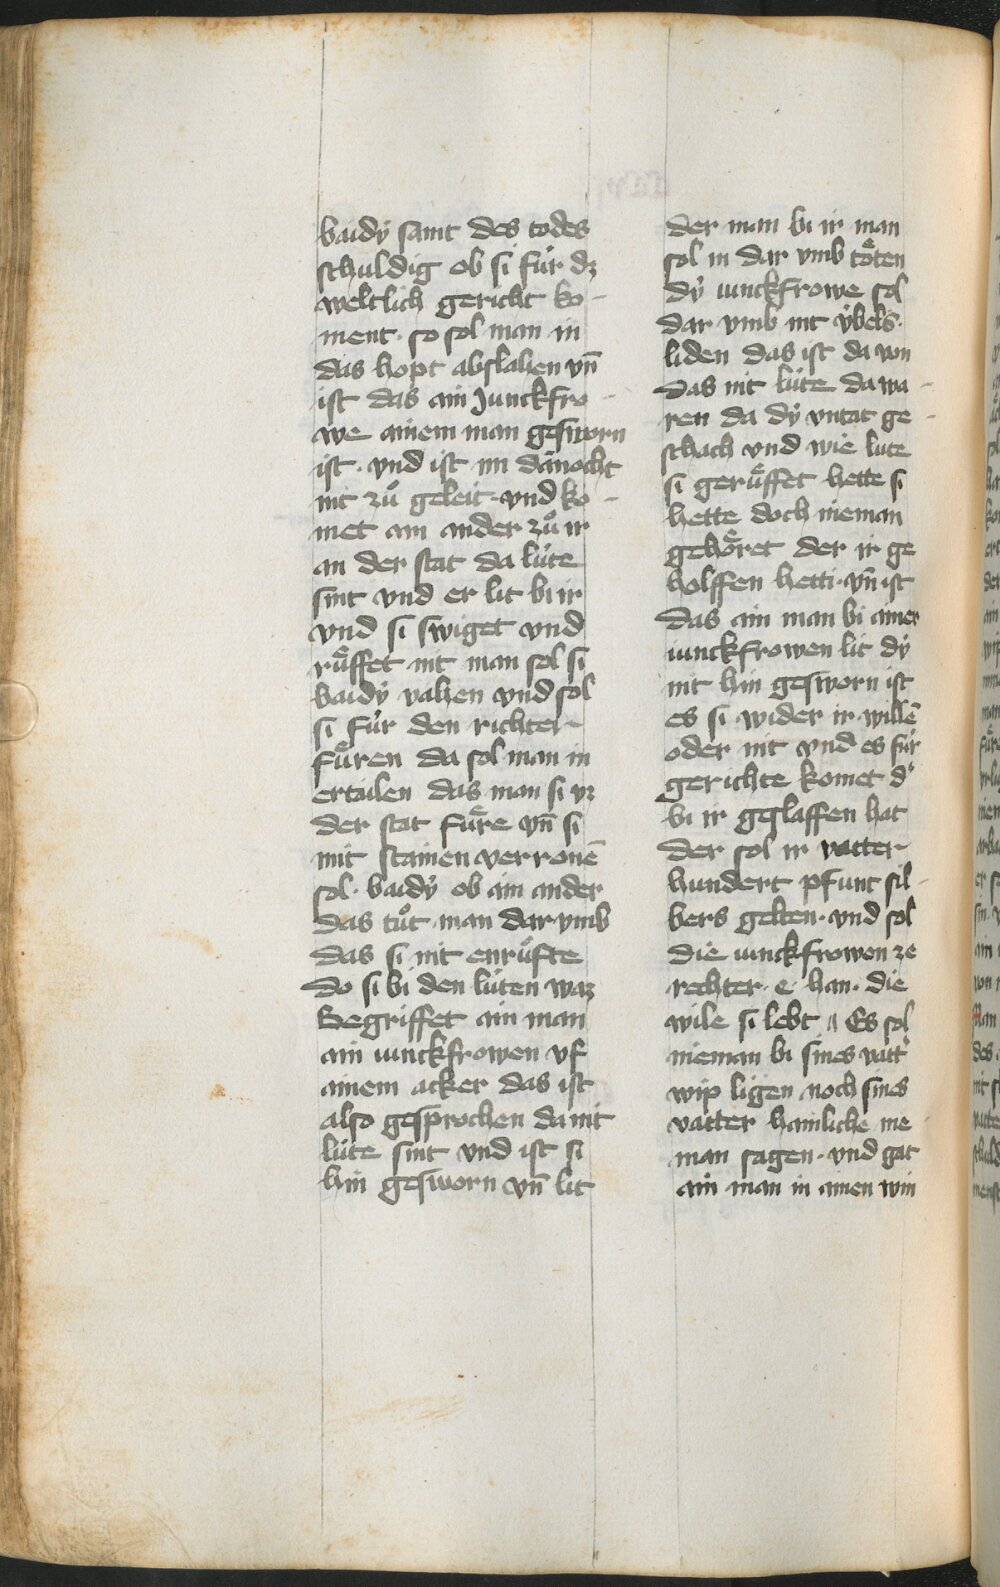 baidÿ samt des todes
schuldig ob si für dz
weltlich gericht ko-
ment · so sol man in
das hopt abslahen vn̄
ist das ain Junckfro-
we ainem man gesworn
ist · vnd ist im dānocht
nit zuͦ geleit · vnd ko-
met ain ander zuͦ ir
an der stat da lüte
sint vnd er lit bi ir
vnd si swiget vnd
rüͤffet nit man sol si
baidÿ vahen vnd sol
si für den richter
füͤren da sol man in
ertailen das man si vz
der stat füͤre vn̄ si
mit stainen verronē
sol · baidÿ ob ain ander
das tuͦt man dar vmb
das si nit enruͦfte
do si bi den lüten waz
Begriffet ain man
ain iunckfrowen vf
ainem acker das ist
also gesprochen da nit
lüte sint vnd ist si
hin gesworn vn̄ lit
der man bi ir man
sol in dar vmb toͤten
dÿ iunckfrowe sol
dar vmb nit ÿbels ·
liden das ist da von
das nit lüte da wa-
ren da dÿ vntat ge-
schach vnd wie lute
si gerüͤffet hette si
hette doch nieman
gehoͤret der ir ge
holffen hetti · vn̄ ist
das ain man bi ainer
iunckfrowen lit dÿ
nit hin gesworn ist
es si wider ir willē
oder nit vnd es für
gerichte komet d'
bi ir geslaffen hat
der sol ir vatter
hundert pfunt sil-
bers gelten · vnd sol
die iunckfrowen ze
rechter · e · han · die
wile si lebt ¶ Es sol
nieman bi sines vatt'
wip ligen noch sines
vatter hainliche nie-
man sagen · vnd gat
ain man in ainen win